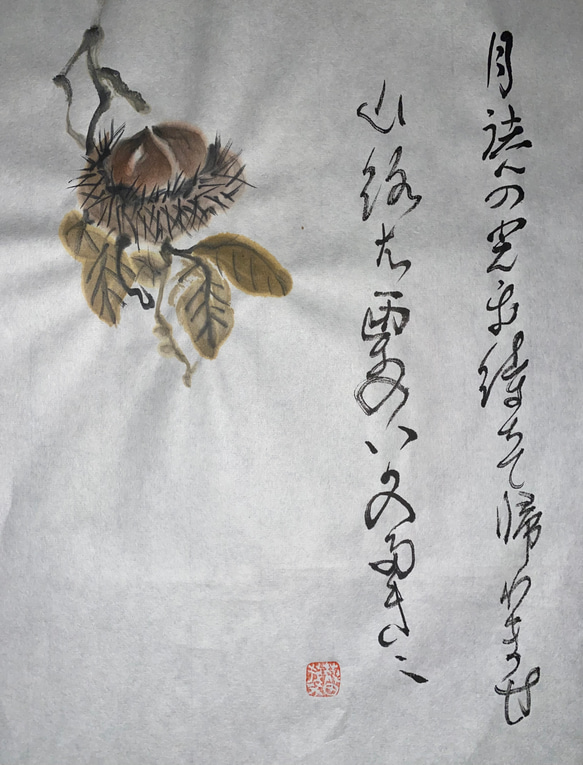 月読の光を待ちて帰りませ
山路は栗のいかの多きに